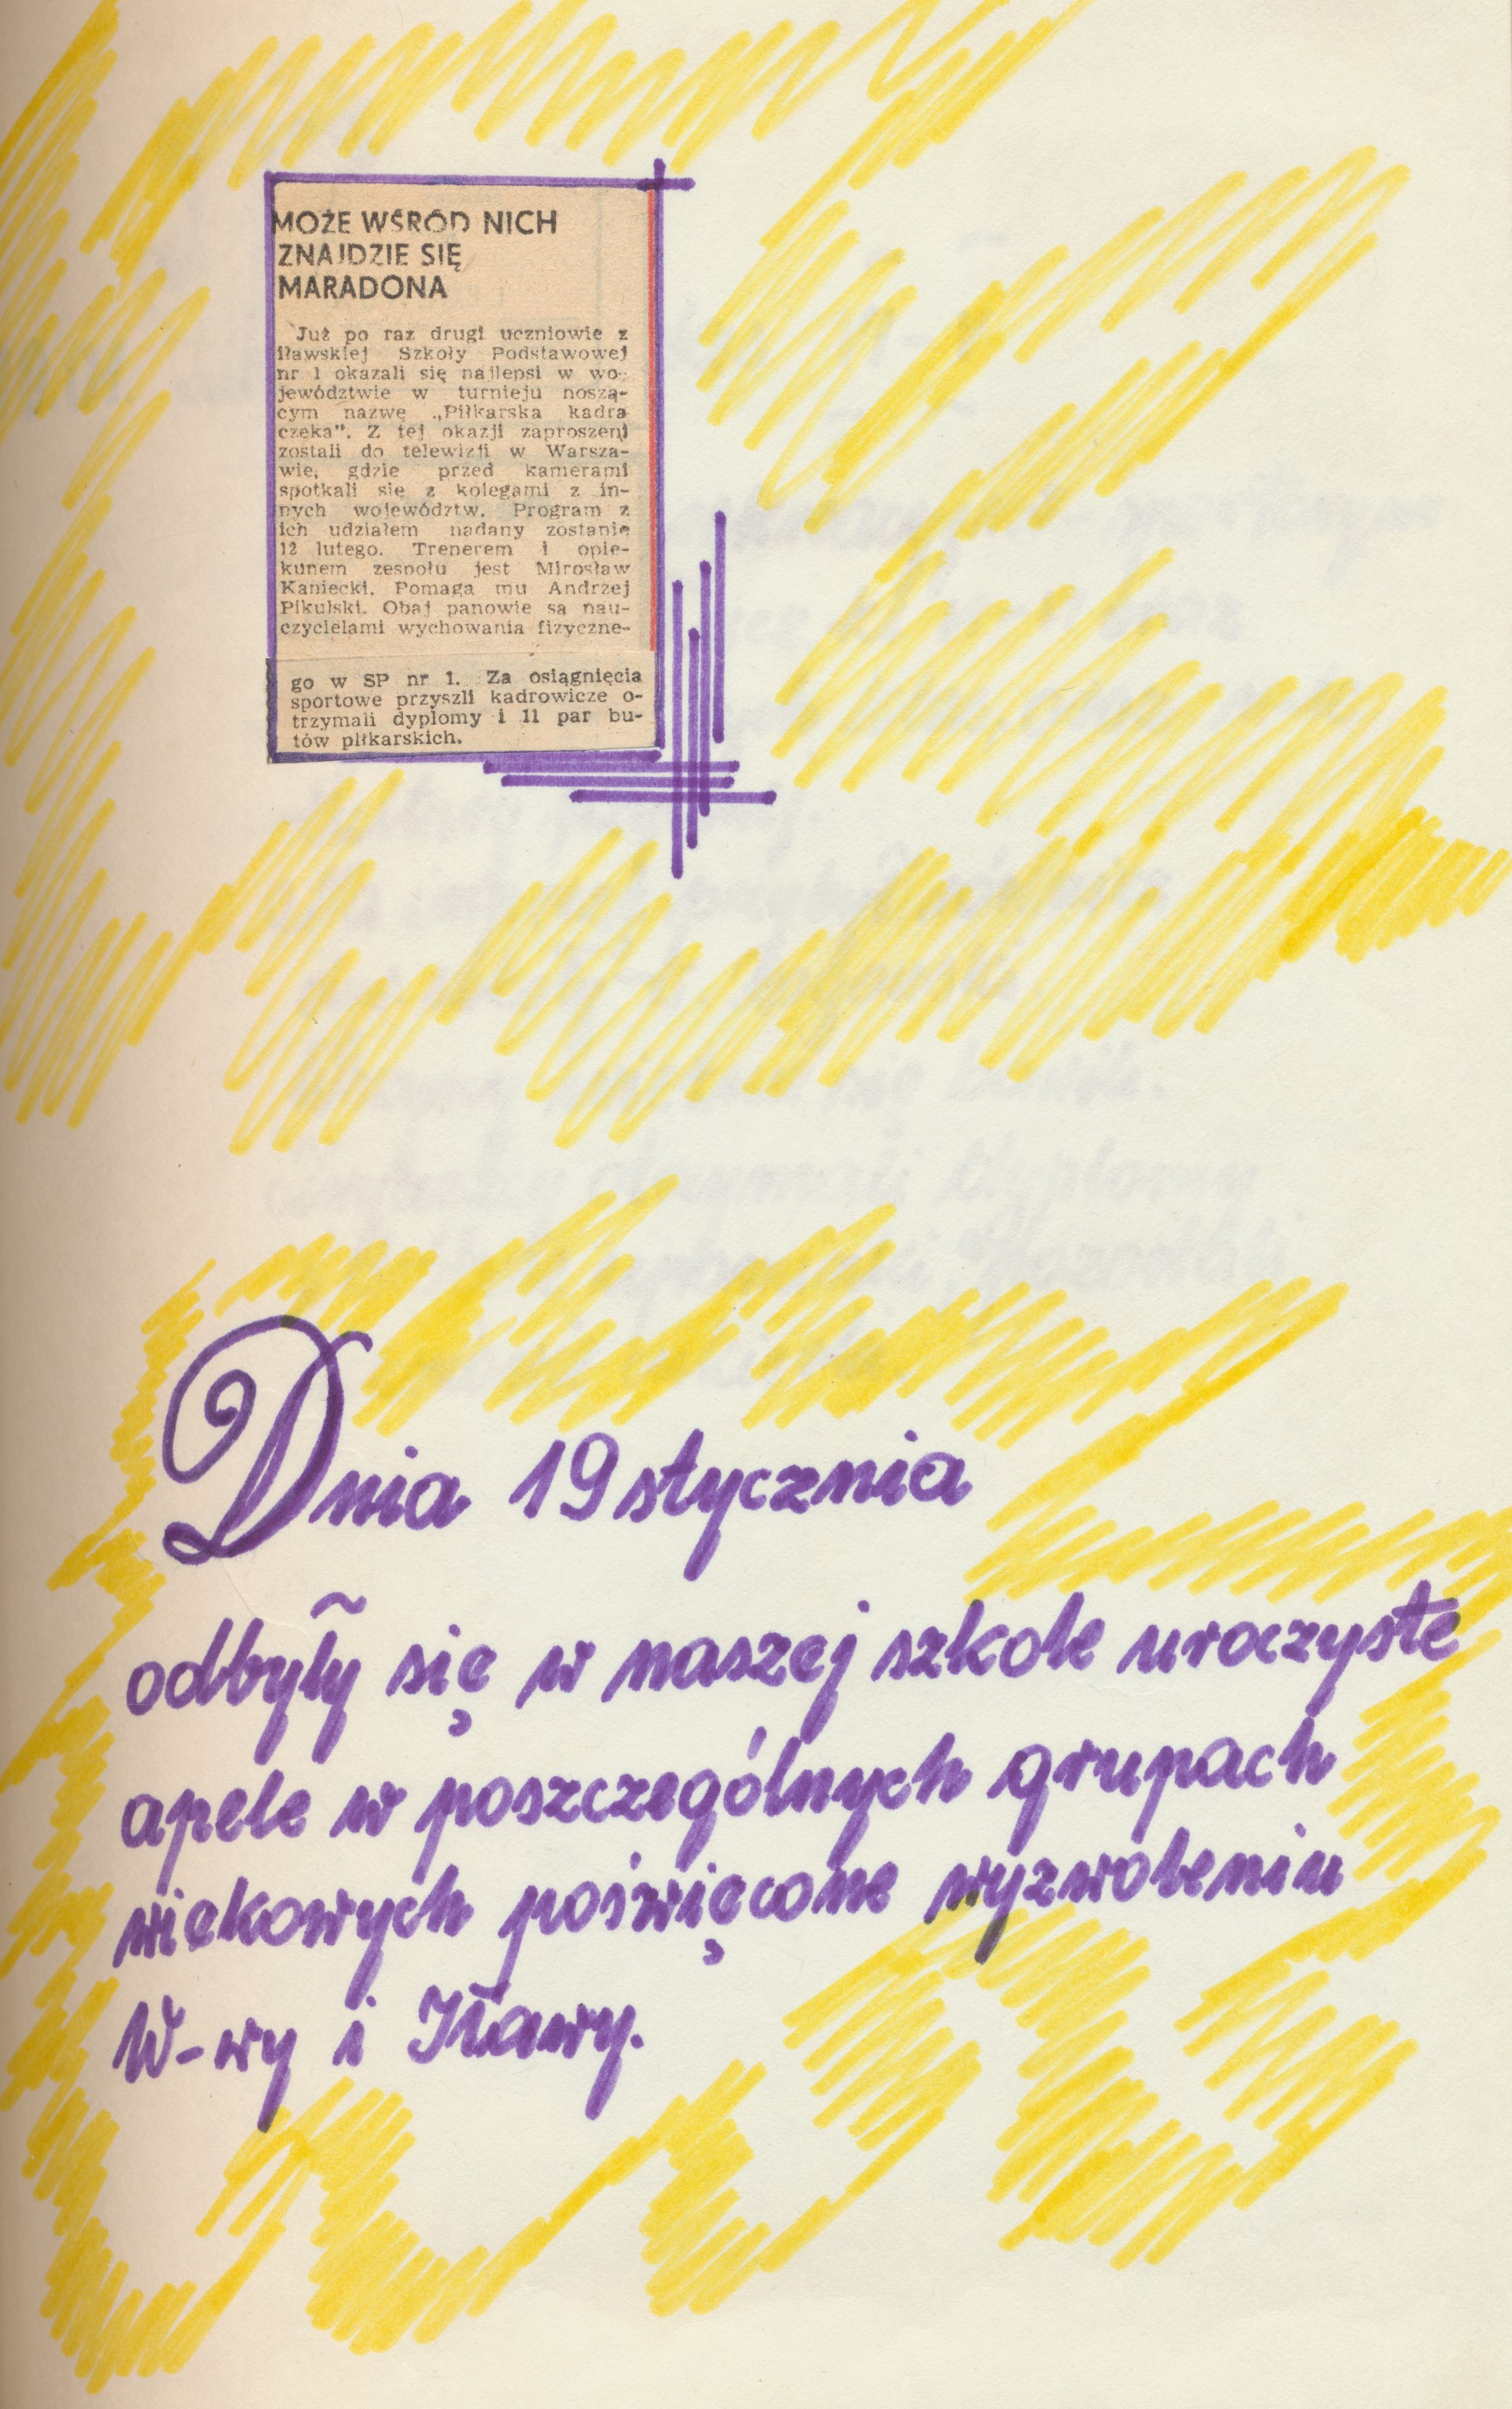 MOŻE WŚRÓD NICH
ZNAJDZIE SIĘ
MARADONA
Już po raz drugi uczniowie z
iławskiej Szkoły Podstawowej
nr 1 okazali się najlepsi w wo-
jewództwie w turnieju noszą-
cym nazwę „Piłkarska kadra
czeka". Z tej okazji zaproszeni
zostali do telewizji w Warsza-
wie, gdzie przed kamerami
spotkali się z kolegami z in-
nych województw. Program z
ich udziałem nadany zostanie
12 lutego. Trenerem i opie-
kunem zespołu jest Mirosław
Kaniecki. Pomaga mu Andrzej
Pikulski. Obaj panowie są nau-
czycielami wychowania fizyczne-
go w SP nr 1. Za osiągnięcia
sportowe przyszli kadrowicze o-
trzymali dyplomy i 11 par bu-
tów piłkarskich.
Dnia 19 stycznia
odbyły się w naszej szkole uroczyste
apele w poszczególnych grupach
wiekowych poświęcone wyzwoleniu
W-wy i Iławy.